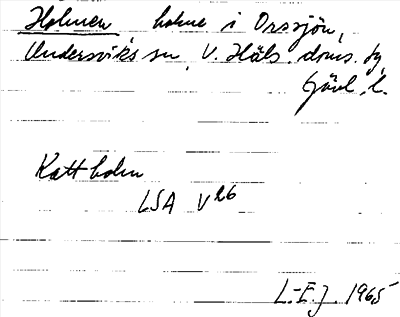 Holmen, holme i Orssjön,
Undersviks sn, V. Häls. doms. fg,
Gävl. l.
Kattholm
LSA V26
L-E.J. 1965